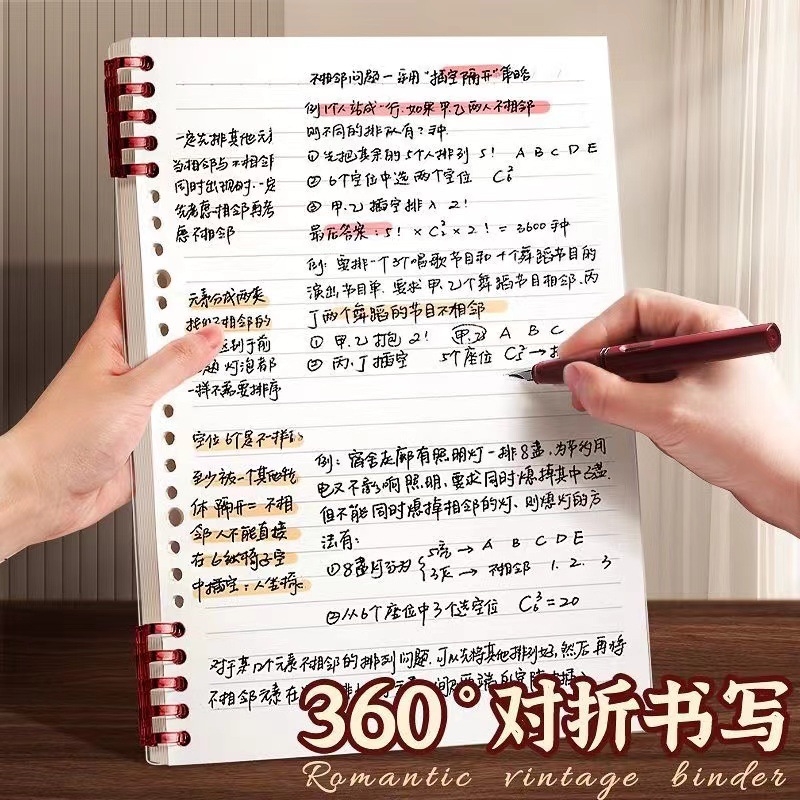 不相邻问题一采用"插空隔开"策略
例1个人站成一行.如果甲.乙两人不相邻
则不同的排队有?种.
① 先把其余的5个人排列 5! A B C D E
② 6个空位中选两个空位 C₆²
③ 甲.乙插空排入 2!
最后答案: 5! × C₆² × 2! = 3600种
例: 要排一个3个唱歌节目和4个舞蹈节目的
演出节目单.要求甲.乙个舞蹈节目相邻.丙
丁两个舞蹈的节目不相邻
① 甲.乙打包 2! 甲.乙 A B C
② 丙.丁插空 5个座位 C₅² →
例: 宿舍走廊有照明灯一排8盏,为节约用
电又不影响照明,要求同时熄掉其中3盏.
但不能同时熄掉相邻的灯、则熄灯的方
法有:
①8盏灯分为 5亮 → A B C D E
3灭 → 不相邻 1. 2. 3
②从6个座位中3个选空位 C₆³=20
一定先排其他元
当相邻与不相邻
同时出现时.一定
先考虑相邻再考
虑不相邻
元素分成两类
相邻的
到于前
灯泡都
一样不需要排序
空位6个是不一样
至少被一个其他物
体隔开=不相
邻人不能直接
在
中插空:人坐椅
对于某几个元素不相邻的排列问题.可以先将其他排列好,然后再将
不相邻元素在
360°对折书写
Romantic vintage binder